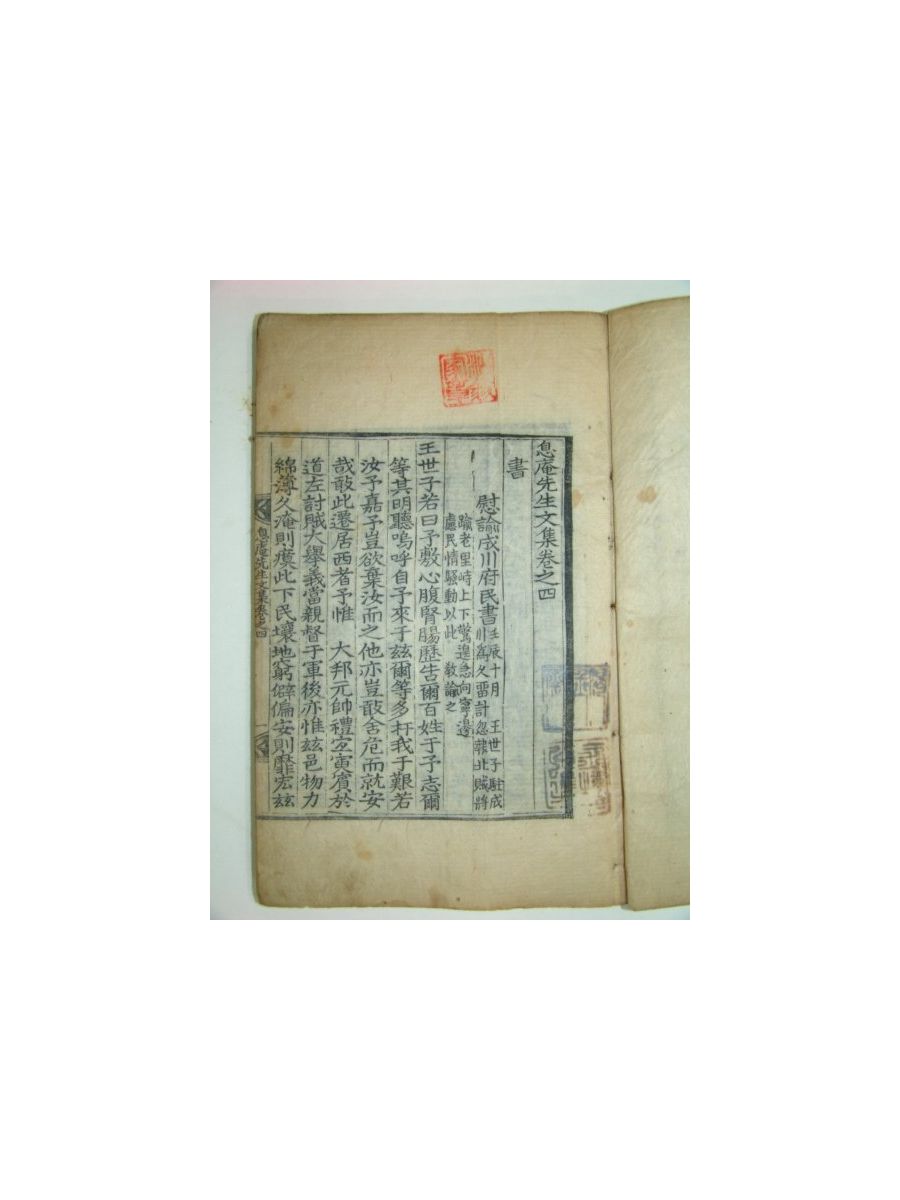 息庵先生文集卷之四
書
慰諭成川府民書
壬辰十月　王世子駐成
川爲久留計忽報北賊將
踰老里峙上下驚遑急向寧邊
慮民情騷動以此　敎諭之
王世子若曰予敷心腹腎腸歷告爾百姓于予志爾
等其明聽嗚呼自予來于玆爾等多扞我于艱若
汝予嘉予豈欲棄汝而之他亦豈敢舍危而就安
哉敢此遷居西者予惟　大邦元帥禮宜寅賓於
道左討賊大擧義當親督于軍後亦惟玆邑物力
綿薄久淹則瘼此下民壤地窮僻偏安則靡宏玆
息庵先生文集卷之四
一